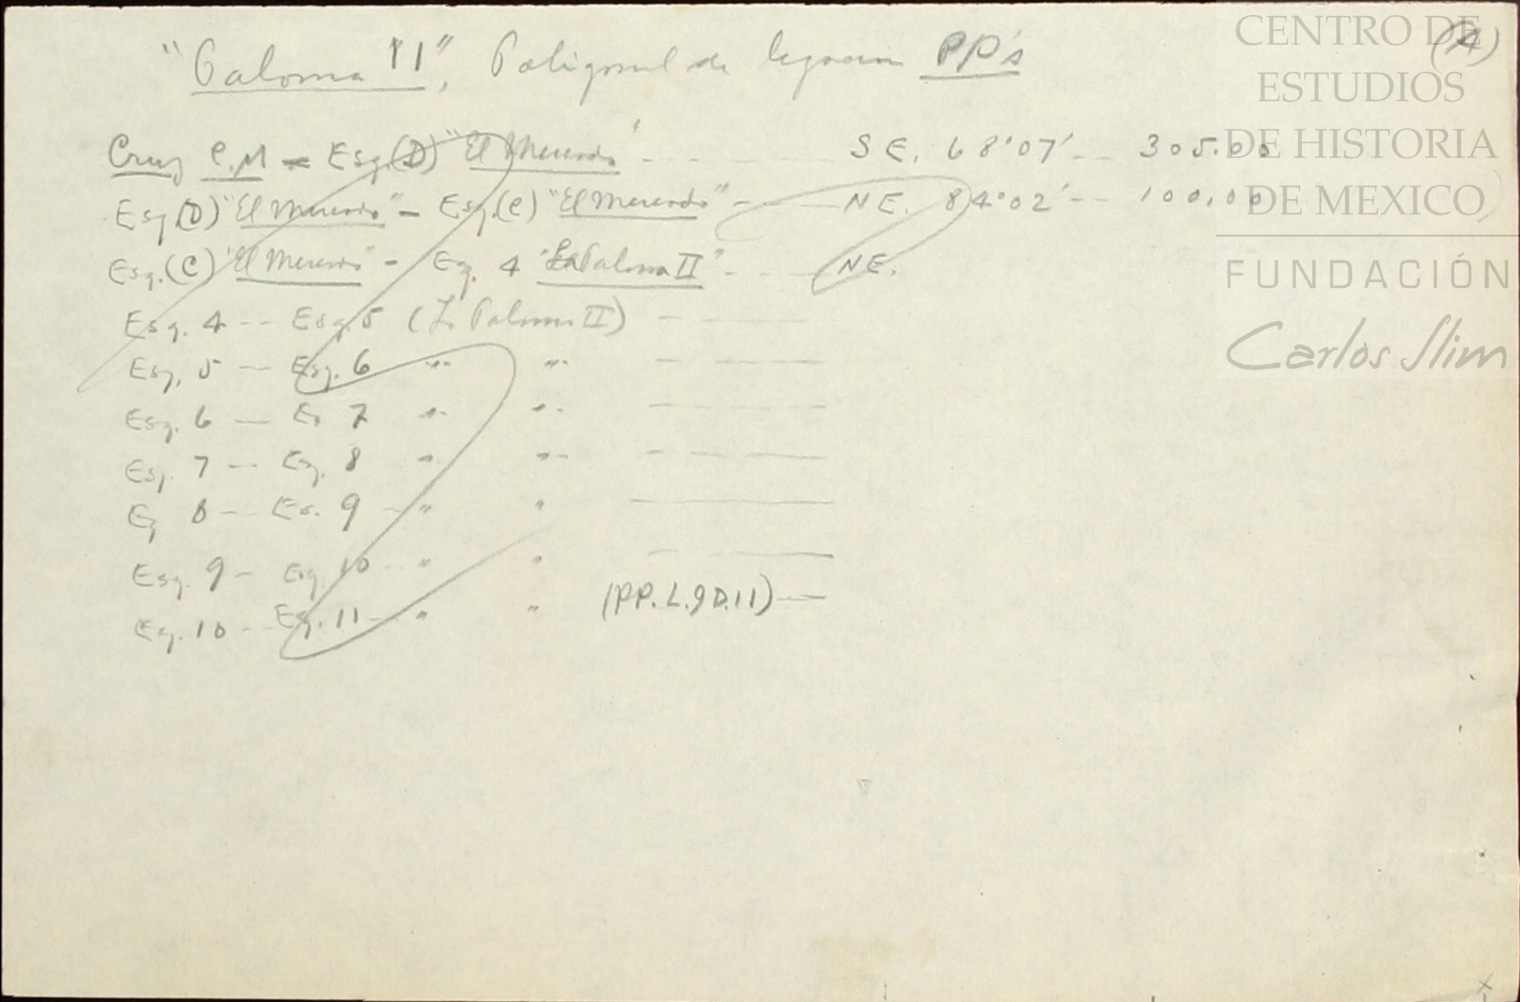 "Paloma II", Poligonal de PP's
(A)
Cruz C.M = Esq.(D) "El Mercado" - - - - SE. 68°07' - - 305.00
Esq.(D) "El Mercado" - Esq.(C) "El Mercado" - - - NE. 84°02' - - 100.00
Esq.(C) "El Mercado" - Eq. 4 "La Paloma II" - - - NE.
Esq. 4 - - Esq. 5 (La Paloma II) - - - -
Esq. 5 - Esq. 6 " " - - - -
Esq. 6 - Es 7 " " - - - -
Esq. 7 - Eq. 8 " " - - - -
Eq 8 - - Es. 9 - " " - - - -
Esq. 9 - Eq. 10 - " " - - - -
Eq. 10 - - Eq. 11 - " " (PP. L.9D.11) -
CENTRO DE
ESTUDIOS
DE HISTORIA
DE MEXICO
FUNDACIÓN
Carlos Slim